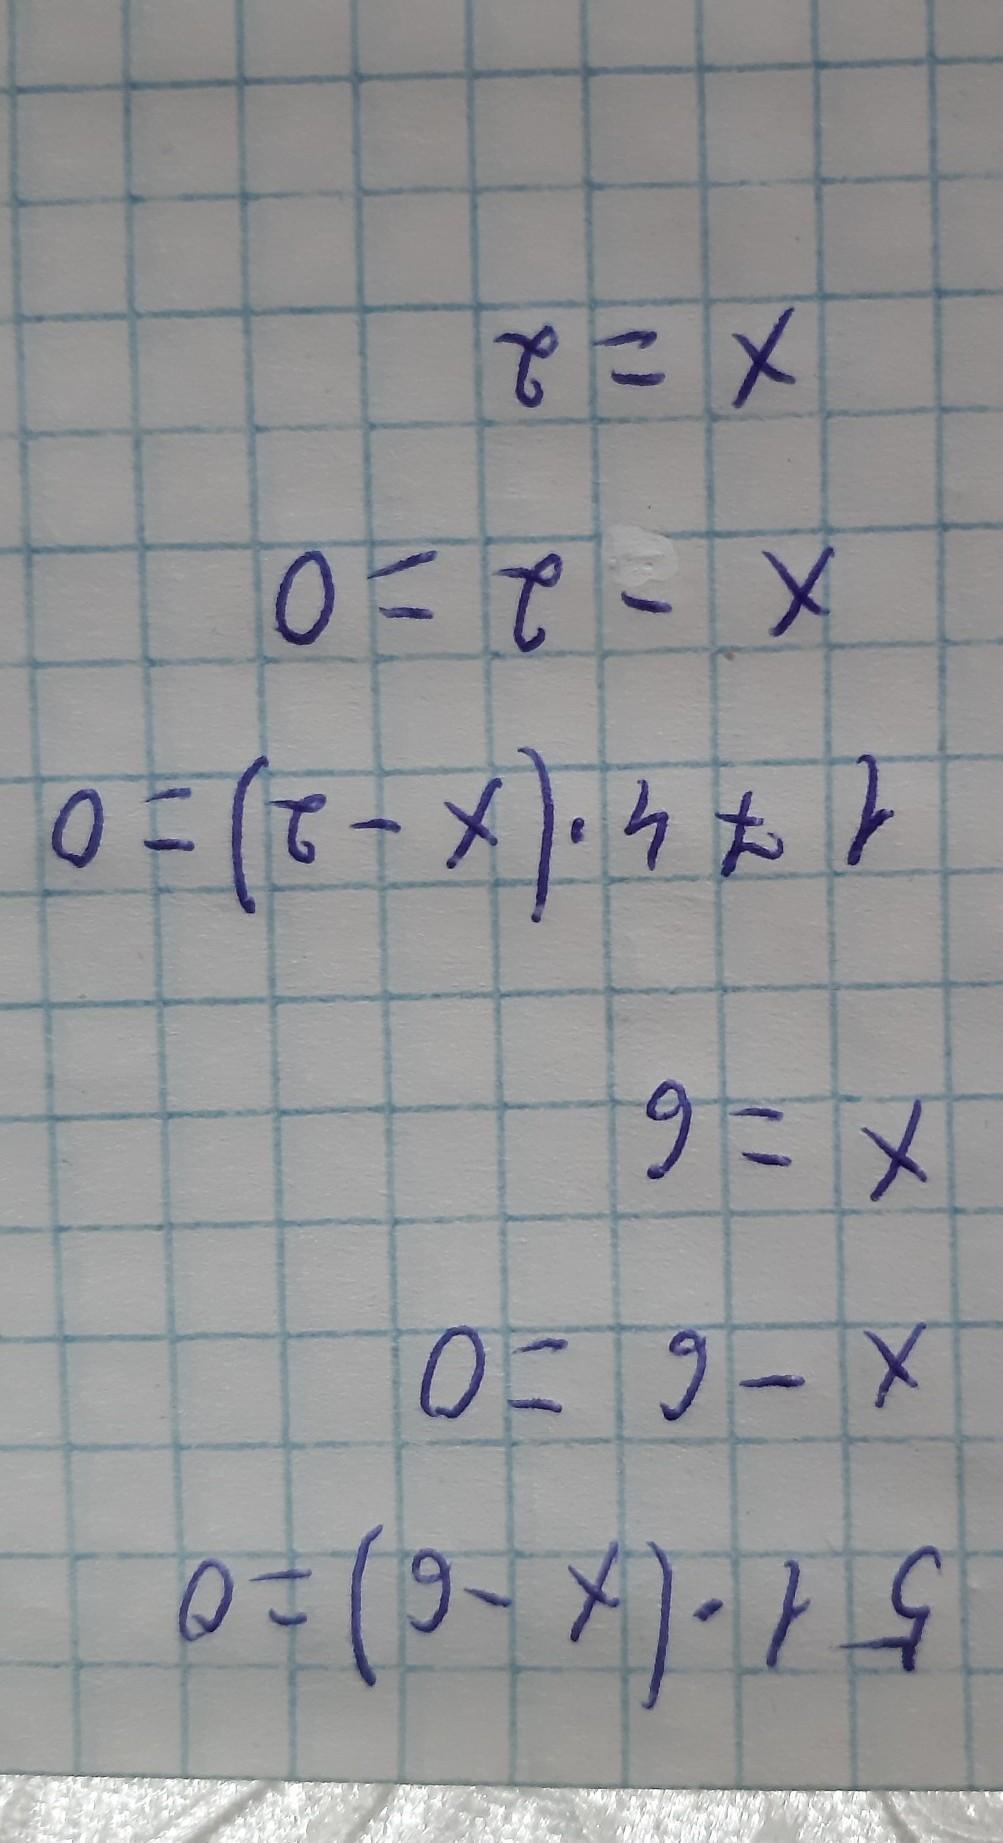 51·(x-6)=0
x-6=0
x=6
174·(x-2)=0
x-2=0
x=2